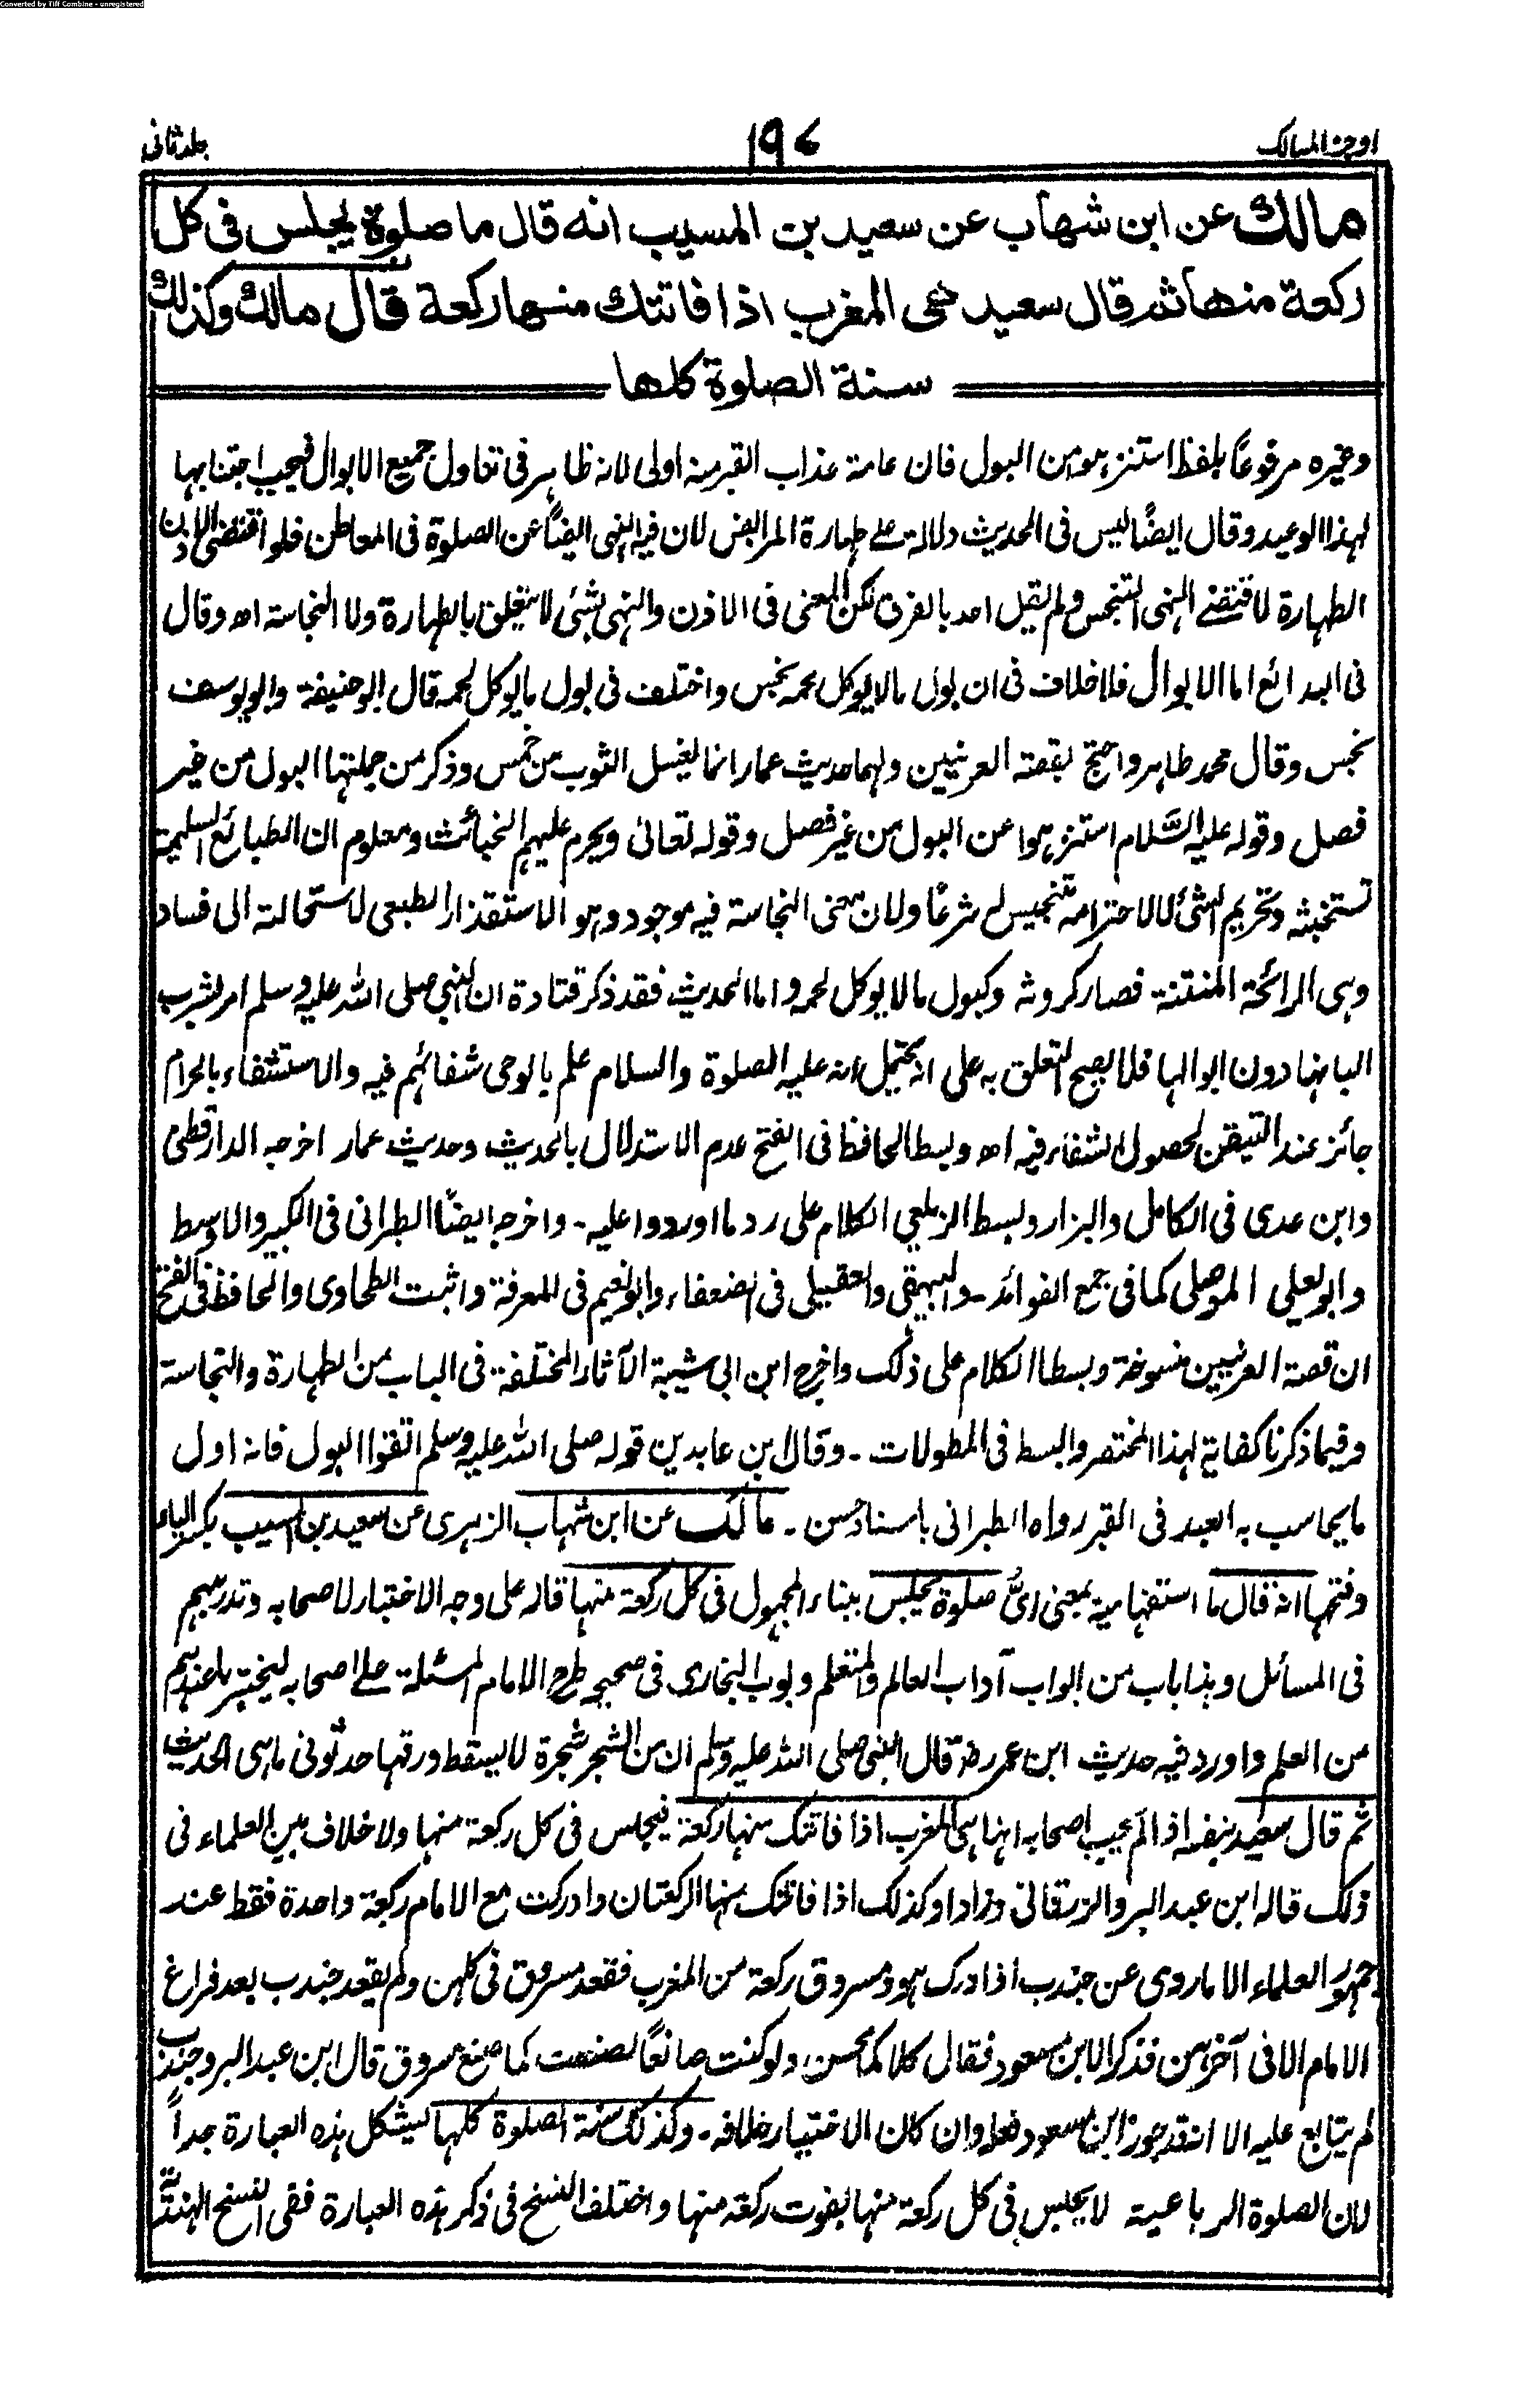 Converted by Tiff Combine - unregistered
اوجز المسالك
١٩٧
جلد ثانی
مالك عن ابن شهاب عن سعيد بن المسيب انه قال ما صلوة يجلس فى كل
ركعة منها ثم قال سعيد هى المغرب اذا فاتتك منها ركعة قال مالك وكذلك
سنة الصلوة كلها
وغيره مرفوعاً بلفظ استنزهوا من البول فان عامة عذاب القبر منه اولى لانه ظاهر فى تناول جميع الابوال فيجب اجتنابها
لهذا الوعيد وقال ايضاً ليس فى الحديث دلالة على طهارة المرابض لان فيه النهى ايضاً عن الصلوة فى المعاطن فلو اقتضى الاذن
الطهارة لاقتضى النهى التنجس ولم يقل احد بالفرق لكن المعنى فى الاذن والنهى بشئ لا يتعلق بالطهارة ولا النجاسة اه وقال
فى البدائع اما الابوال فلا خلاف فى ان بول ما لا يوكل لحمه نجس واختلف فى بول ما يوكل لحمه قال ابو حنيفة وابو يوسف
نجس وقال محمد طاهر واحتج بقصة العرنيين ولهما حديث عمار انما يغسل الثوب من خمس وذكر من جملتها البول من غير
فصل وقوله عليه السَّلام استنزهوا من البول من غير فصل وقوله تعالى ويحرم عليهم الخبائث ومعلوم ان الطبائع السليمة
تستخبثه وتحريم الشئ لا لاحترامه تنجيس له شرعاً ولان معنى النجاسة فيه موجود وهو الاستقذار الطبعى لاستحالته الى فساد
وهى الرائحة المنتنة فصار كروثه وكبول ما لا يوكل لحمه واما الحديث فقد ذكر قتادة ان النبى صلى الله عليه وسلم امر بشرب
البانها دون ابوالها فلا يصح التعلق به على انه يحتمل انه عليه الصلوة والسلام علم بالوحى شفائهم فيه والاستشفاء بالحرام
جائز عند التيقن لحصول الشفاء فيه اه وبسط الحافظ فى الفتح عدم الاستدلال بالحديث وحديث عمار اخرجه الدارقطنى
وابن عدى فى الكامل والبزار وبسط الزيلعي الكلام على رد ما اوردوا عليه - واخرجه ايضاً الطبرانى فى الكبير والاوسط
وابو يعلى الموصلى كما فى جمع الفوائد - والبيهقى والعقيلى فى الضعفاء وابو نعيم فى المعرفة واثبت الطحاوى والحافظ فى الفتح
ان قصة العرنيين منسوخة وبسطا الكلام على ذلك واخرج ابن ابى شيبة الآثار المختلفة فى الباب من الطهارة والنجاسة
وفيما ذكرنا كفاية لهذا المختصر والبسط فى المطولات - وقال ابن عابدين قوله صلى الله عليه وسلم اتقوا البول فانه اول
ما يحاسب به العبد فى القبر رواه الطبرانى باسناد حسن - مالك عن ابن شهاب الزهرى عن سعيد بن المسيب بكسر الياء
وفتحها انه قال ما استفهامية بمعنى اىُّ صلوة يجلس ببناء المجهول فى كل ركعة منها قاله على وجه الاختبار لاصحابه وتدريبهم
فى المسائل وهذا باب من ابواب آداب العالم والمتعلم وبوب البخارى فى صحيحه طرح الامام المسئلة على اصحابه ليختبر ما عندهم
من العلم واورد فيه حديث ابن عمر رضـ قال النبى صلى الله عليه وسلم ان من الشجر شجرة لا يسقط ورقها حدثونى ما هى الحديث
ثم قال سعيد بنفسه اذ الم يجب اصحابه انها هى المغرب اذا فاتتك منها ركعة فيجلس فى كل ركعة منها ولا خلاف بين العلماء فى
ذلك قاله ابن عبد البر والزرقانى وزادا وكذلك اذا فاتتك منها الركعتان وادركت مع الامام ركعة واحدة فقط عند
جمهور العلماء الا ما روى عن جندب اذ ادرك هو ومسروق ركعة من المغرب فقعد مسروق فى كلهن ولم يقعد جندب بعد فراغ
الامام الا فى آخرهن فذكرا لابن مسعود فقال كلاكما محسن ولو كنت صانعاً لصنعت كما صنع مسروق قال ابن عبد البر وجندب
لم يتابع عليه الا انه قد جوز ابن مسعود فعله وان كان الاختيار خلافه - وكذلك سنة الصلوة كلها يشكل هذه العبارة جداً
لان الصلوة الرباعية لا يجلس فى كل ركعة منها بفوت ركعة منها واختلف النسخ فى ذكر هذه العبارة ففى النسخ الهندية